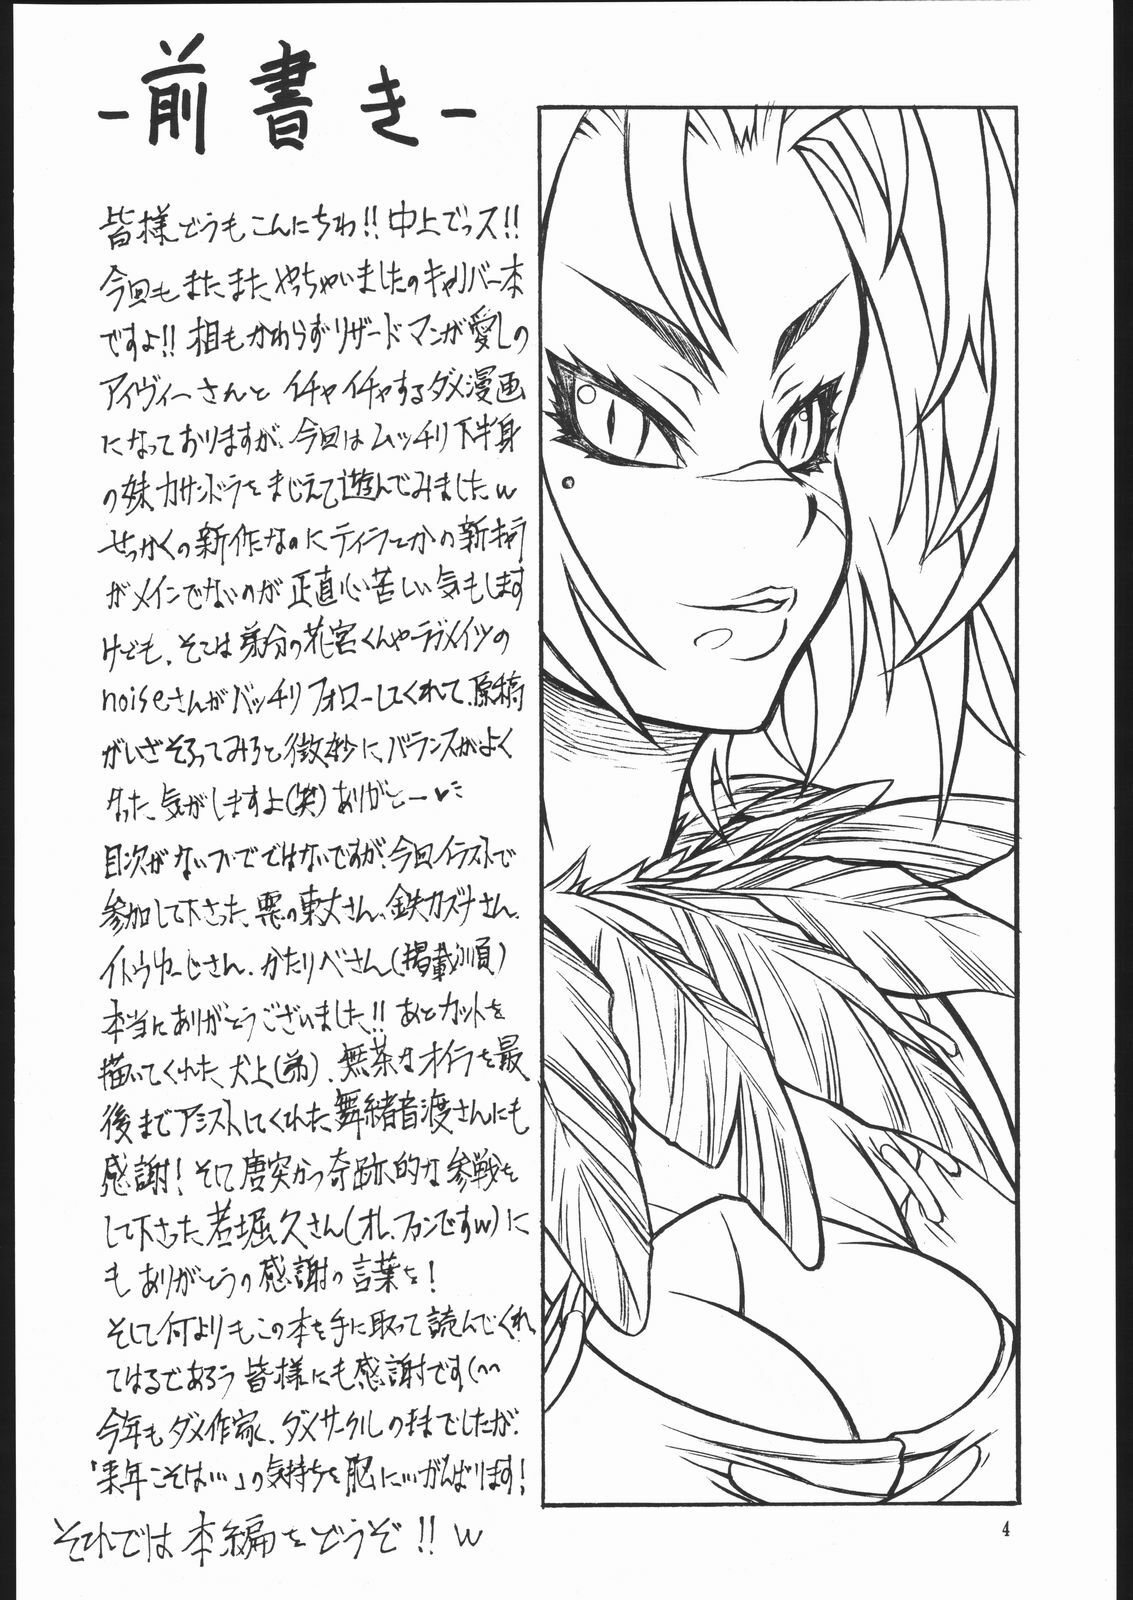 -前書き-
皆様どうもこんにちわ!!中上でっス!!
今回もまたまたやっちゃいましたのキャリバー本
ですよ!!相もかわらずリザードマンが愛しの
アイヴィーさんとイチャイチャするダメ漫画
になっておりますが、今回はムッチリ下半身
の妹カサンドラをまじえて遊んでみましたw
せっかくの新作なのにティラとかの新キャラ
がメインでないのが正直心苦しい気もします
けども、そこは弟分の花宮くんやラグメイツの
noiseさんがバッチリフォローしてくれて、原稿
がいざそろってみると微妙にバランスがよく
なった気がしますよ(笑)ありがとー♥
目次がないのでではないですが、今回イラストで
参加して下さった悪の東丈さん、鉄カズナさん、
イトウゆーじさん、かたりべさん(掲載順)
本当にありがとうございました!!あとカットを
描いてくれた犬上(弟)、無茶なオイラを最
後までアシストしてくれた舞緒音渡さんにも
感謝!そして唐突かつ奇跡的な参戦を
して下さった若堀久さん(オレ、ファンですw)に
もありがとうの感謝の言葉を!
そして何よりもこの本を手に取って読んでくれ
てはるであろう皆様にも感謝です(^^
今年もダメ作家、ダメサークルのままでしたが、
「来年こそは…」の気持ちを胸に…がんばります!
それでは本編をどうぞ!!w
4